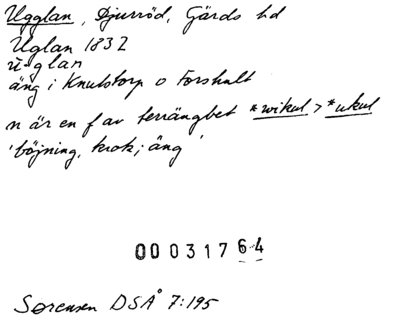 Ugglan, Djurröd, Gärds hd
Uglan 1832
ū-glan
äng i Knutstorp o Forshult
n är en f av terrängbet *wikul > *ukul
'böjning, krok; äng'
00031764
Sørensen DSÅ 7:195